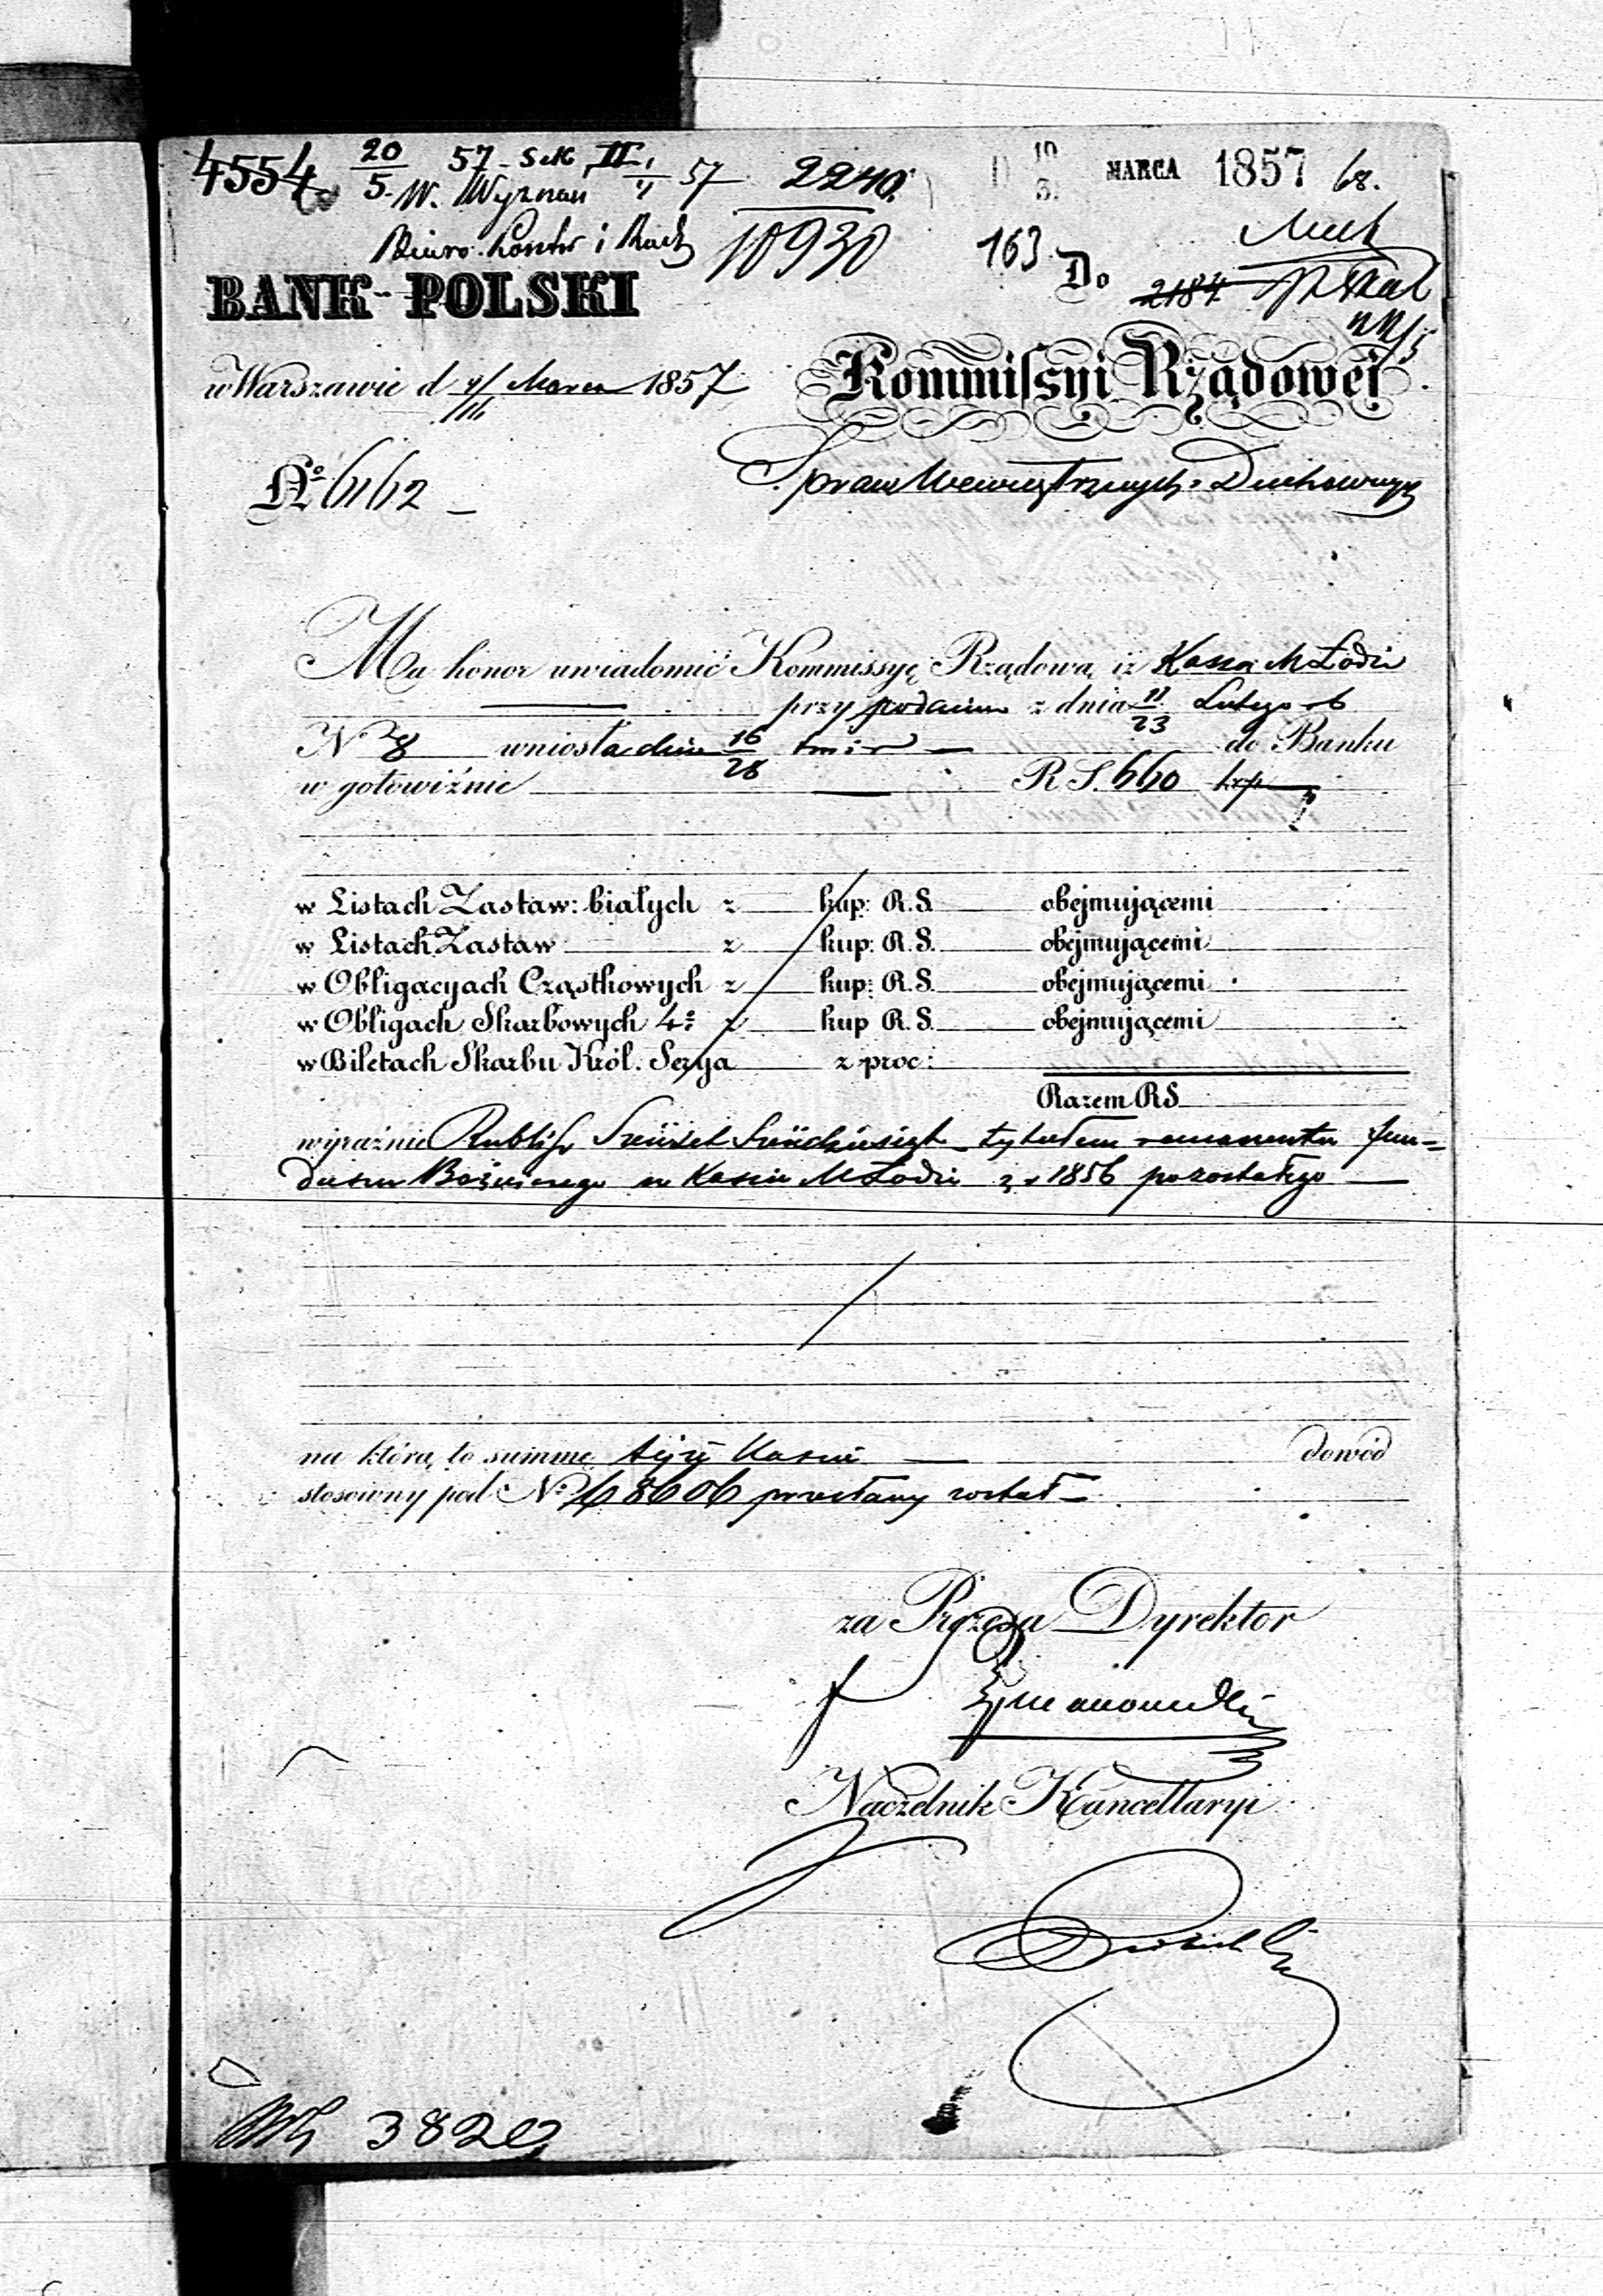 4554 20/5 57 Sek II 57 2240 D 10/3. MARCA 1857 68.
W. Wyznań
Biuro Kontr i Rach 10930 163
BANK POLSKI Do 2184
w Warszawie d 4/16 Marca 1857
Kommissyi Rządowéj
No 6162 Spraw Wewnętrznych i Duchownych
Ma honor uwiadomić Kommissyę Rządową iż Kassa M Łodzi
przy podaniu z dnia 11/23 Lutego r b
N 28 wniosła dnia 16/28 do Banku
w gotowiźnie R S. 660 kop
w Listach Zastaw: białych z kup: R.S. obejmującemi
w Listach Zastaw z kup: R.S. obejmującemi
w Obligacyach Cząstkowych z kup: R.S. obejmującemi
w Obligach Skarbowych 4: z kup R.S. obejmującemi
w Biletach Skarbu Król. Serya z proc:
Razem RS
wyraźnie Rubli sr Sześćset Sześćdziesiąt tytułem remanentu fun=
duszu Bożniczego w Kassie M Łodzi z r 1856 pozostałego
na którą to summę tejże Kassie dowód
stosowny pod No 68606 przesłany został
za Prezesa Dyrektor
Naczelnik Kancellaryi